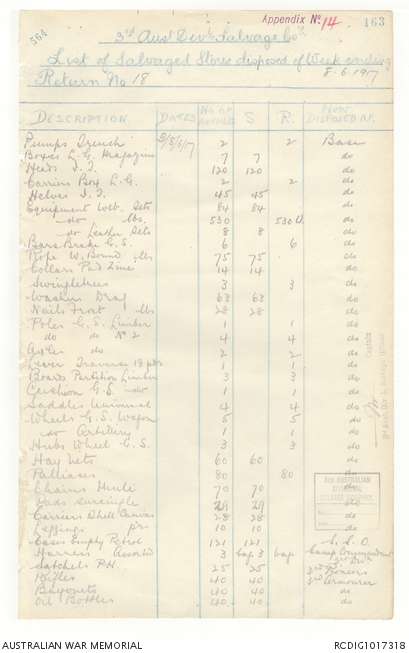 Appendix No. 14
163
564
3rd Aust. Div. Salvage Coy.
List of Salvaged Stores disposed of Week ending
Return No 18 8-6-1917
DESCRIPTION. DATES No OF ARTICLES S R. HOW DISPOSED OF.
Pumps Trench 2 2 Base
Boxes L.G. Magazine 7 7 do
Heads I.T. 120 120 do
Carriers Box L.G. 2 2 do
Helves I.T. 45 45 do
Equipment Web. Sets 84 84 do
do lbs. 530 530 do
do Leather Sets 8 8 do
Bars Brake G.S. 6 6 do
Rope W. Bound lbs 75 75 do
Collars Pad Zinc 14 14 do
Swingletrees 3 3 do
Washers Drag 63 63 do
Nails Frost lbs 28 28 do
Poles G.S. Limber 1 1 do
do do No 2 4 4 do
Axles do 2 2 do
Lever Traverse 18 pdr 1 1 do
Boards Partition Limber 3 3 do
Cushion G.S. do 1 1 do
Saddles Universal 4 4 do
Wheels G.S. Wagon 5 5 do
do Artillery 1 1 do
Hubs Wheel G.S. 3 3 do
Hay Nets 60 60 do
Palliases 80 80 do
Chains Mule 70 70 do
Pads Surcingle 29 29 do
Carriers Shell Canvas 28 28 do
Leggings prs. 10 10 do
Cases Empty Petrol 121 121 S.S.O
Harness Assorted 3 bags 3 bags Camp Commandant
Satchels P.H. 25 25 3rd Pioneers
Rifles 40 40 3rd Armourer
Bayonets 40 40 do
Oil Bottles 40 40 do
Captain
AUSTRALIAN WAR MEMORIAL RCDIG1017318